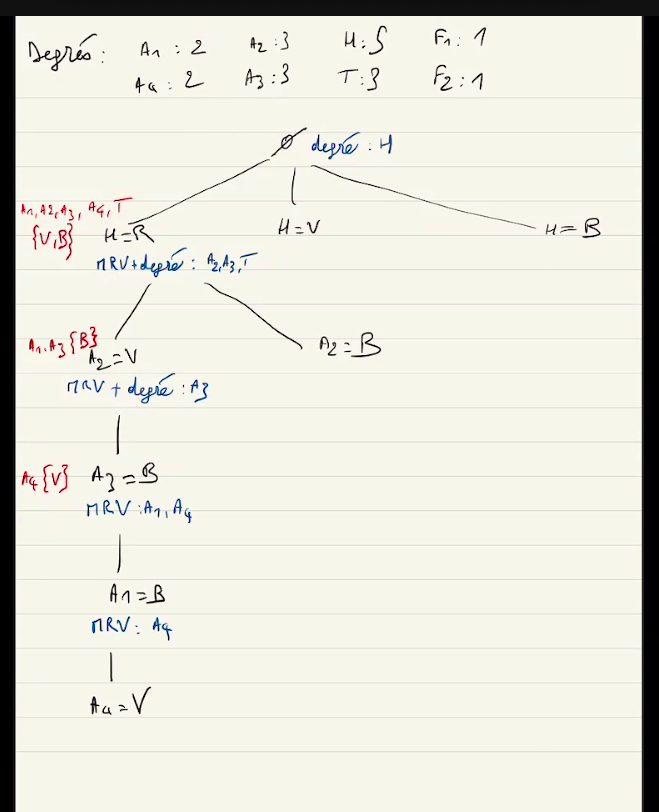 Degrés : A1 : 2 A2 : 3 H : 5 F1 : 1
A4 : 2 A3 : 3 T : 3 F2 : 1
Ø degré : H
A1, A2, A3, A4, T
{V,B} H=R H=V H=B
MRV+degré : A2, A3, T
A1, A3 {B}
A2=V A2=B
MRV + degré : A3
A4 {V} A3=B
MRV : A1, A4
A1=B
MRV : A4
A4=V